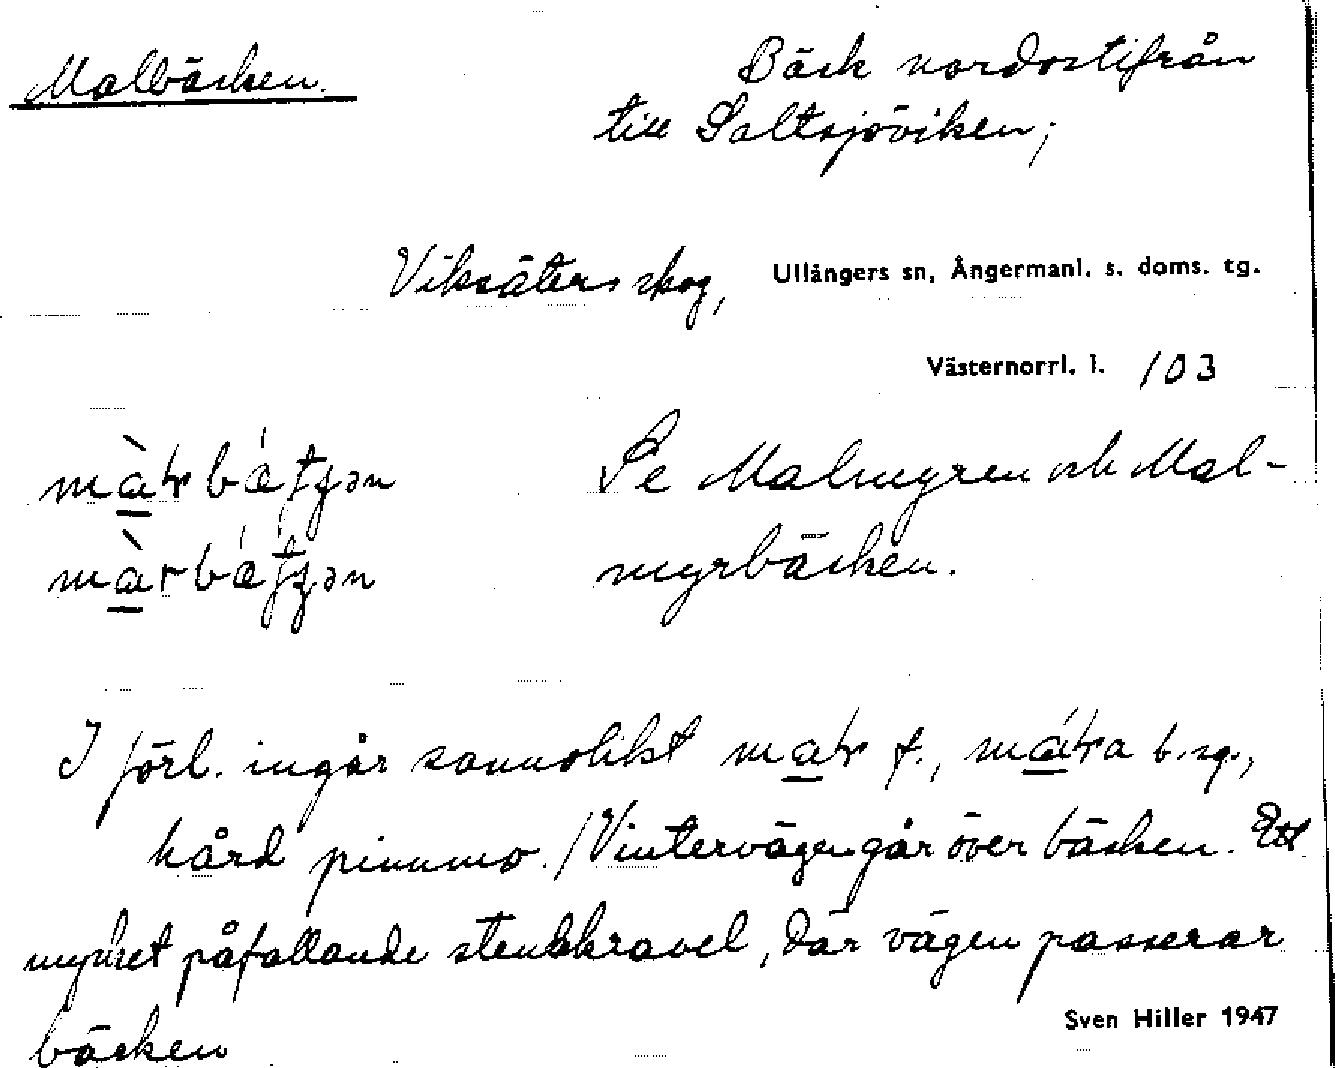 Malbäcken.
Bäck nordostifrån
till Saltsjöviken;
Viksäters skog, Ullångers sn, Ångermanl. s. doms. tg.
Västernorrl. l. 103
Se Malmyren och Mal-
myrbäcken.
I förl. ingår sannolikt f., b. sg.,
hård pinnmo. / Vintervägen går över bäcken. Ett
mycket påfallande stenskravel, där vägen passerar
bäcken
Sven Hiller 1947